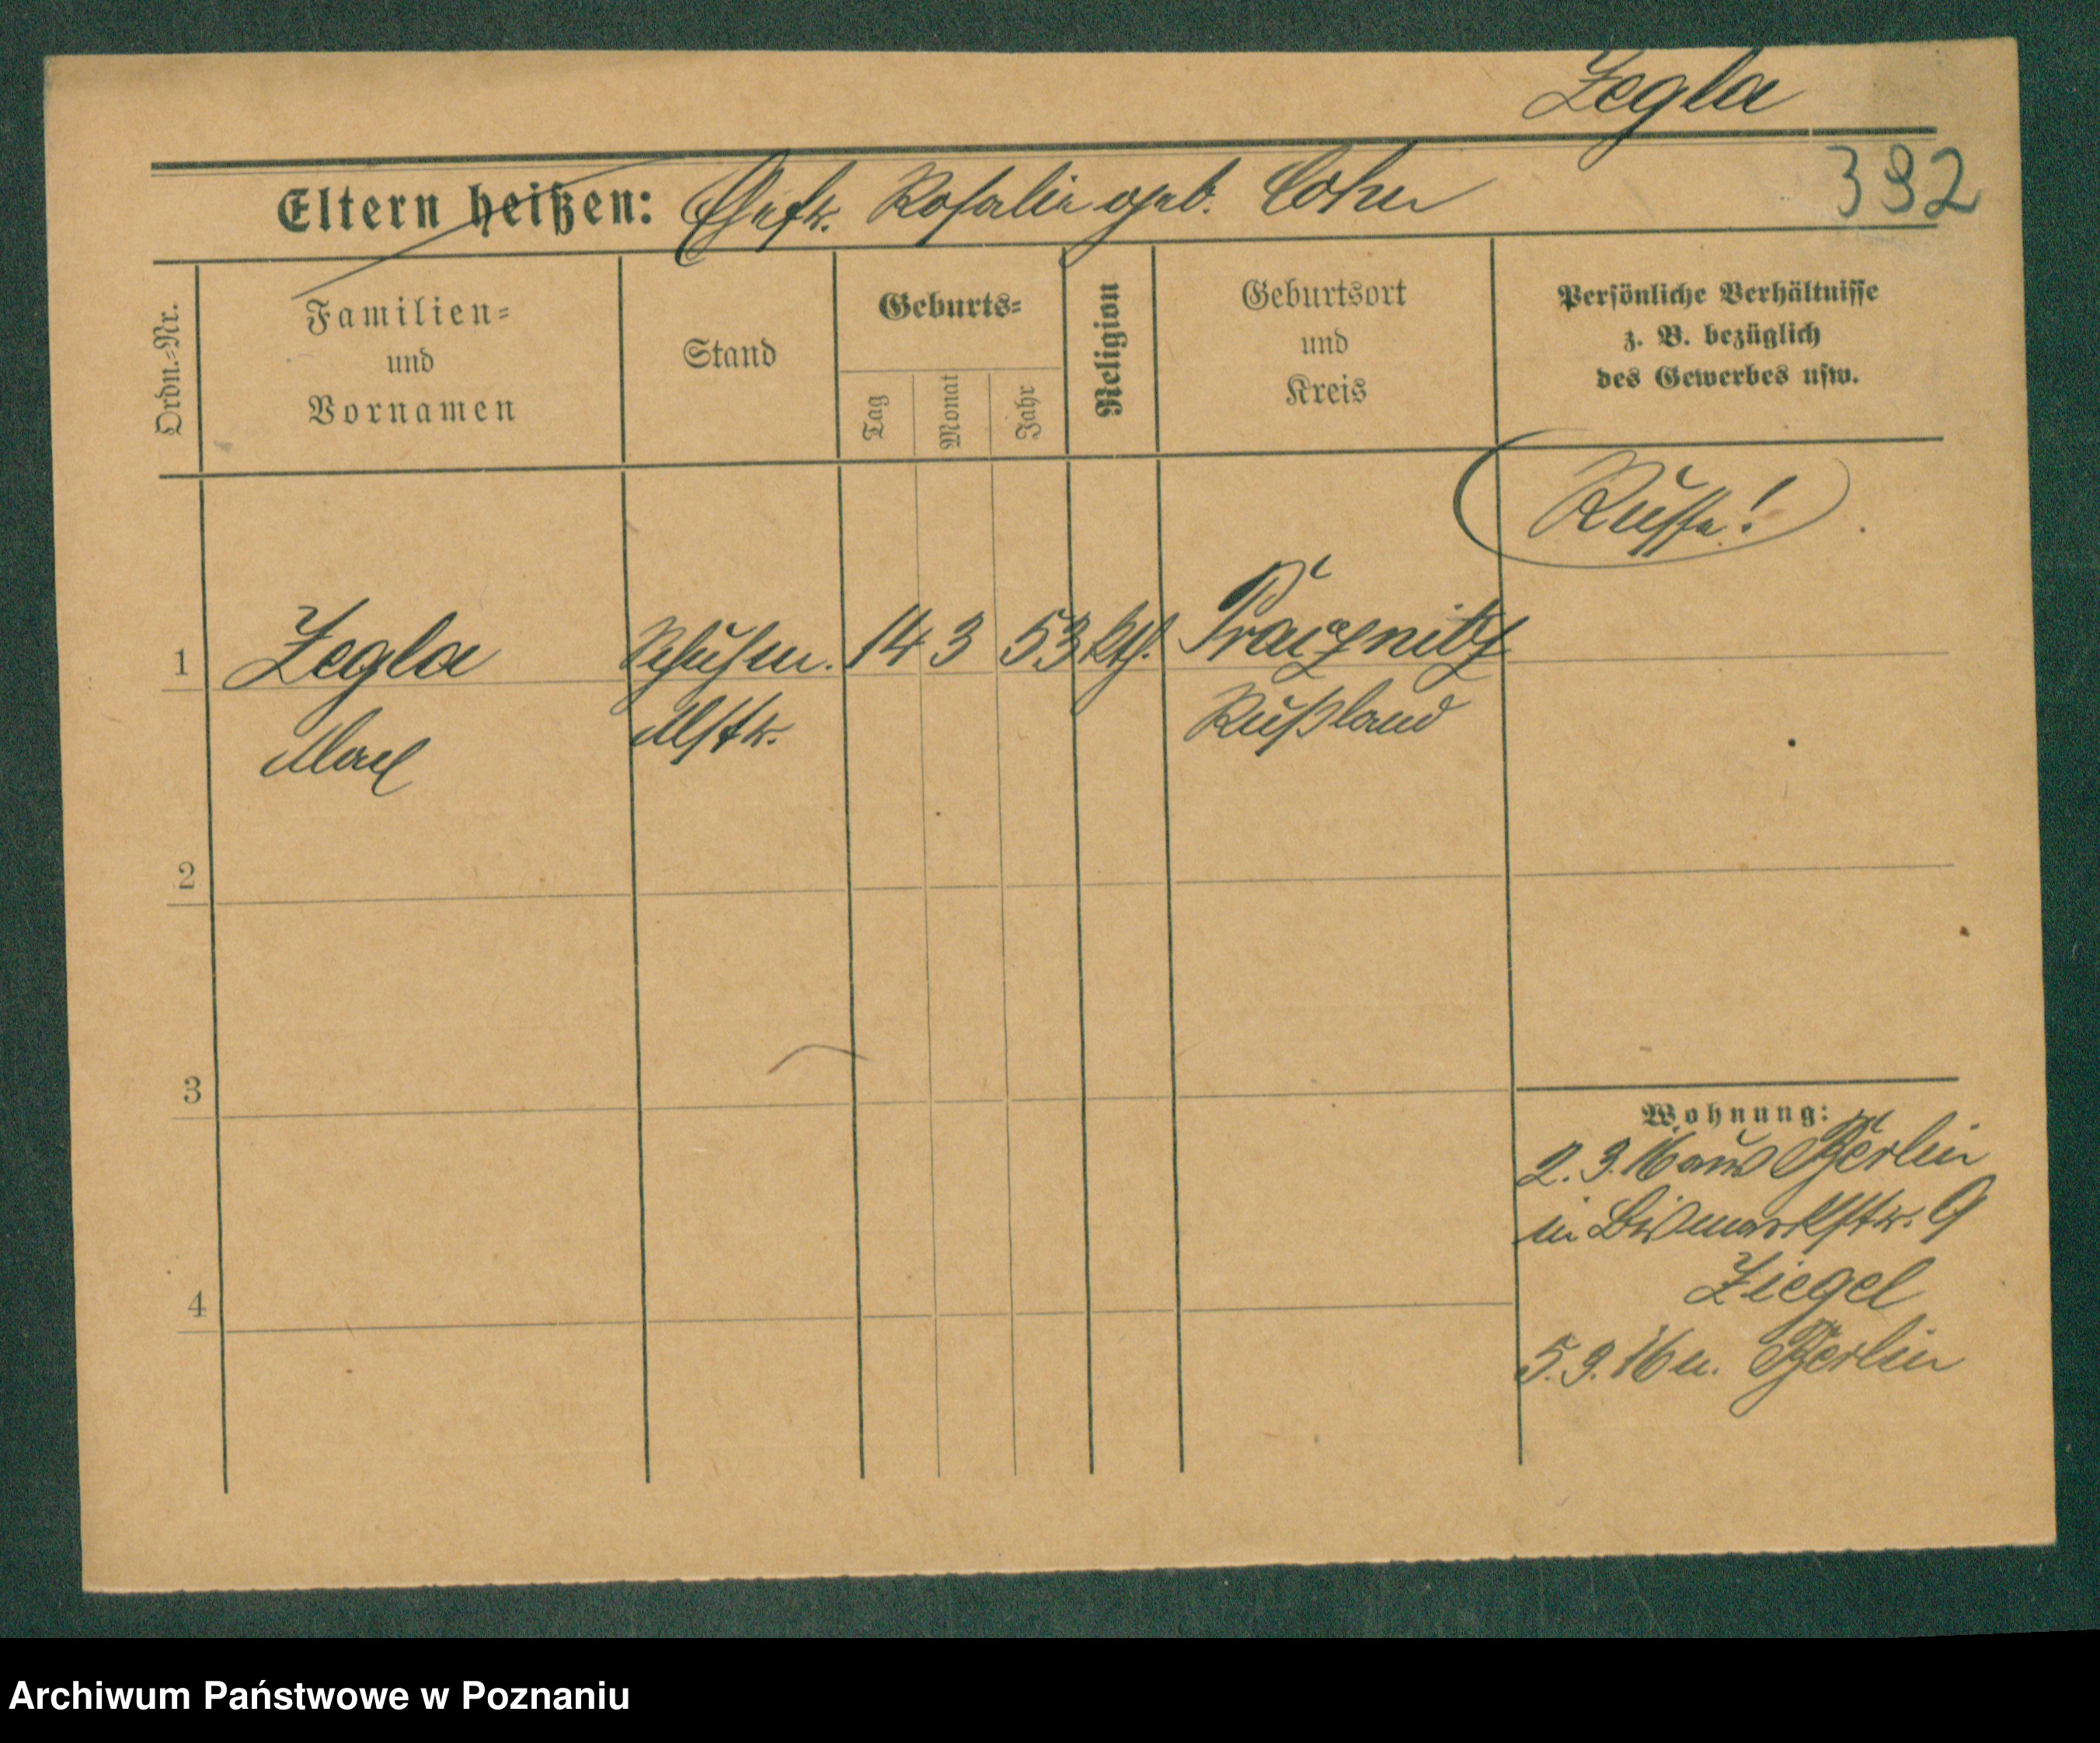 Zegla
392
Eltern heißen: Ehefr. Rosalie geb. Cohn
Ordn.=Nr.
Familien=
und
Vornamen
Stand
Geburts=
Tag
Monat
Jahr
Religion
Geburtsort
und
Kreis
Persönliche Verhältnisse
z. B. bezüglich
des Gewerbes usw.
Russe!
1 Zegla Schuhm. 14 3 53 kth. Praeznitz
Max Mstr. Rußland
2
3
4
Wohnung:
2.9.16 aus Berlin
in Bismarckstr. 9
Ziegel
5.9.16 n. Berlin
Archiwum Państwowe w Poznaniu